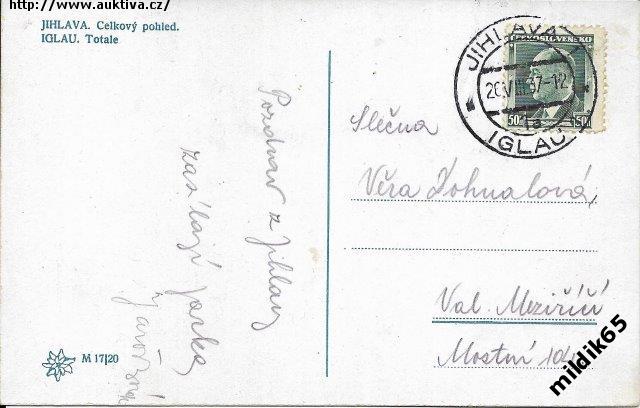 http://www.auktiva.cz/
JIHLAVA. Celkový pohled.
IGLAU. Totale
Pozdrav z Jihlavy
zasílají
JIHLAVA
20.VIII.37-12
IGLAU
ČESKOSLOVENSKO
50 50h
Slečna
Věra Dohnalová,
Val. Meziříčí
Mostní
M 17|20
mildik65